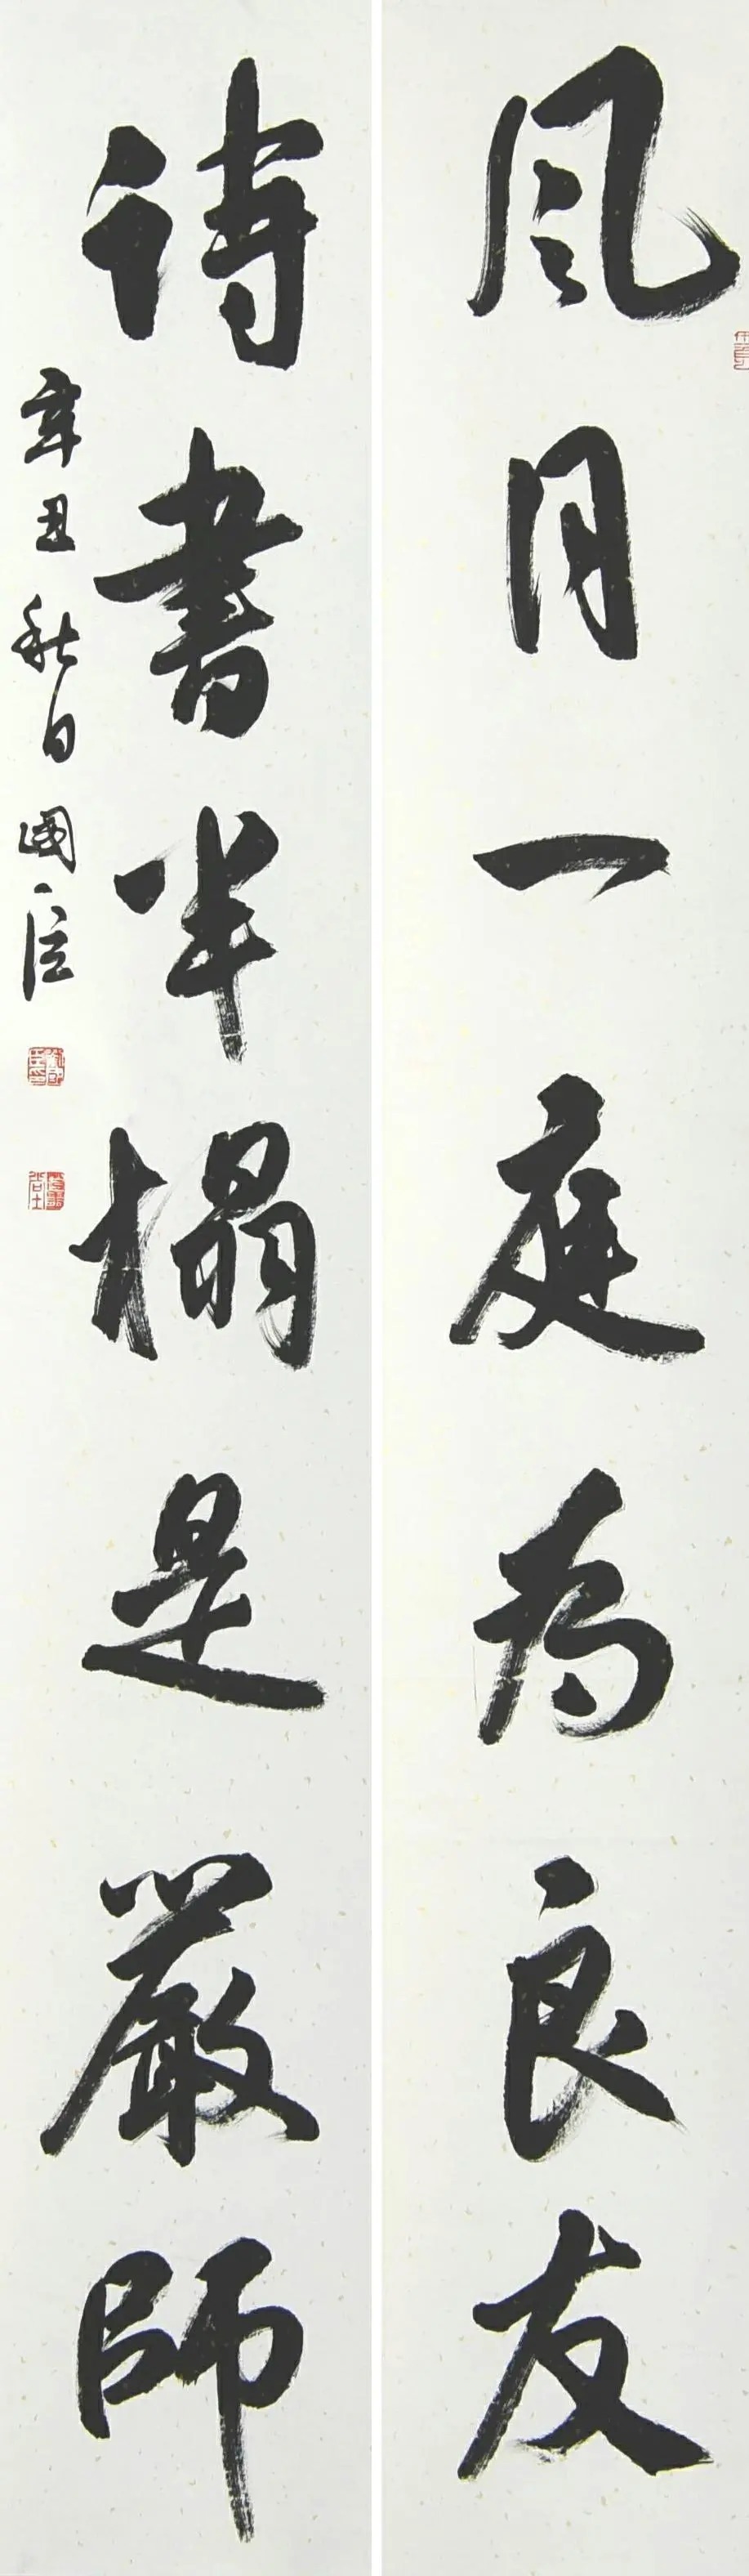 風月一庭為良友
詩書半榻是嚴師
辛丑秋日國臣